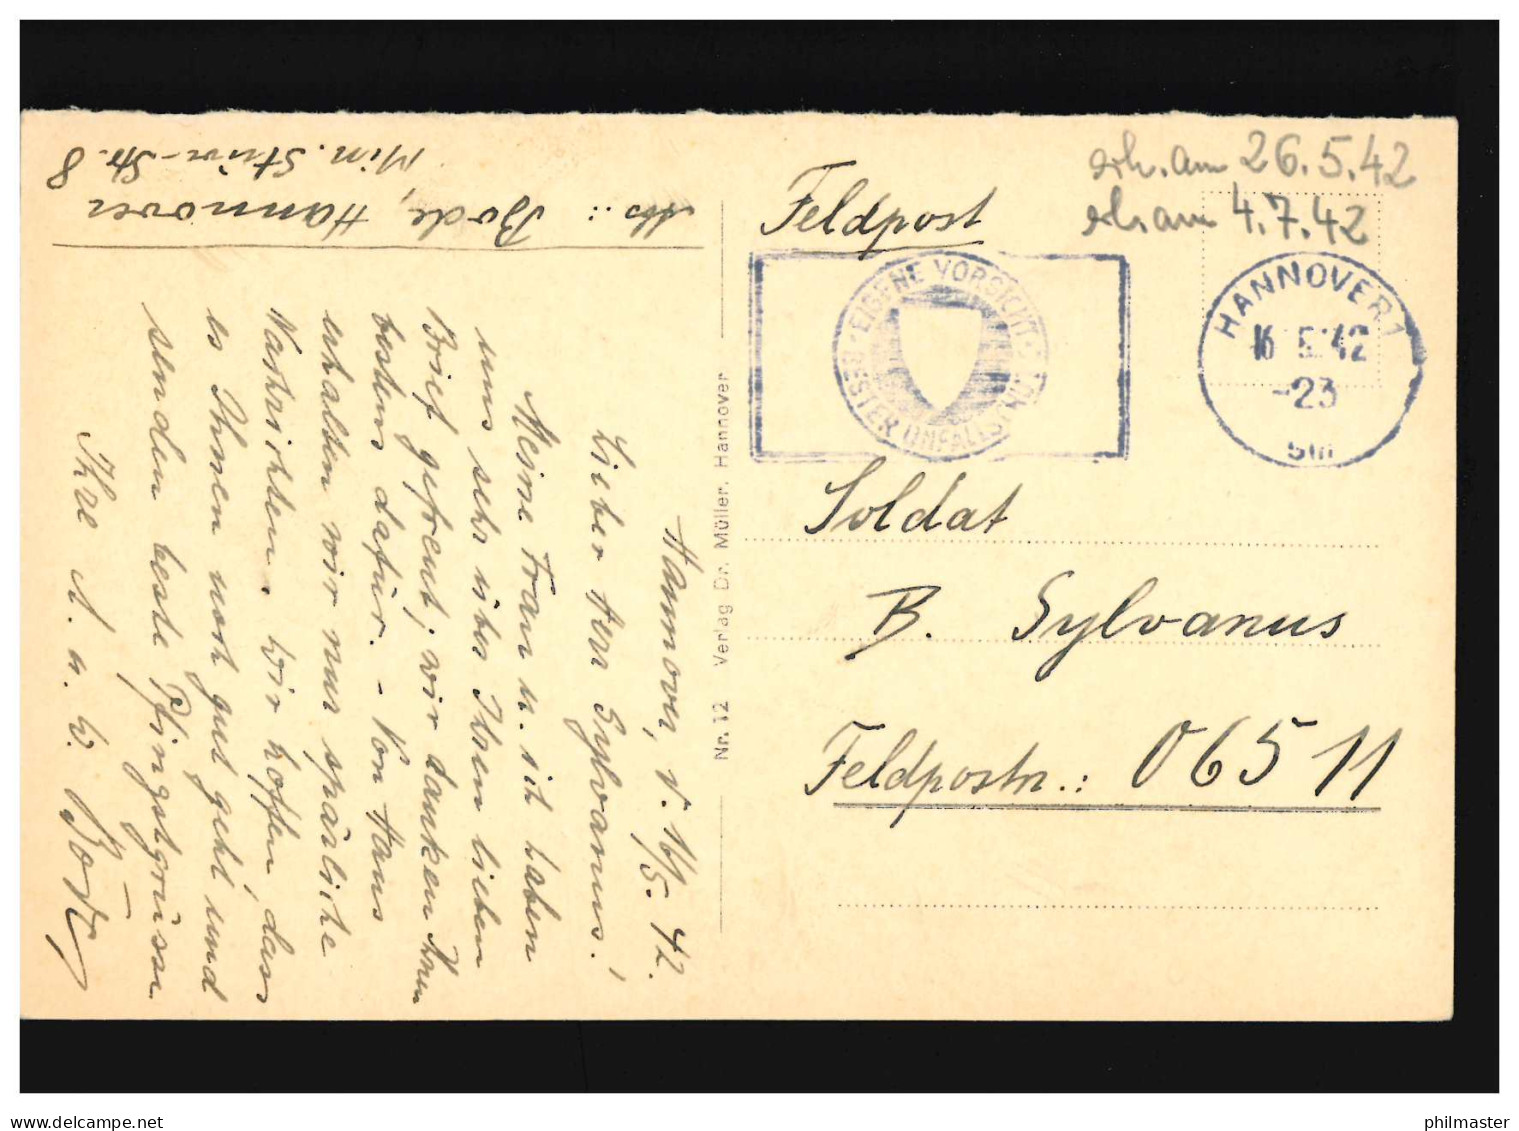 Abs.: Bode, Hannover
Min. Stüve-Str. 8
Hannover, d. 16/5. 42.
Lieber Herr Sylvanus!
Meine Frau u. ich haben
uns sehr über Ihren lieben
Brief gefreut, wir danken Ihnen
bestens dafür. - Von Hans
erhalten wir nur spärliche
Nachrichten. Wir hoffen, dass
es Ihnen noch gut geht und
senden beste Pfingstgrüsse
Ihre A. u. W. Bode
Nr. 12 Verlag Dr. Müller, Hannover
Feldpost
erh. am 26.5.42
erh. am 4.7.42
EIGENE VORSICHT
BESTER UNFALLSCHUTZ
HANNOVER 1
16 5.42
-23
Soldat
B. Sylvanus
Feldpostn.: 06511
philmaster